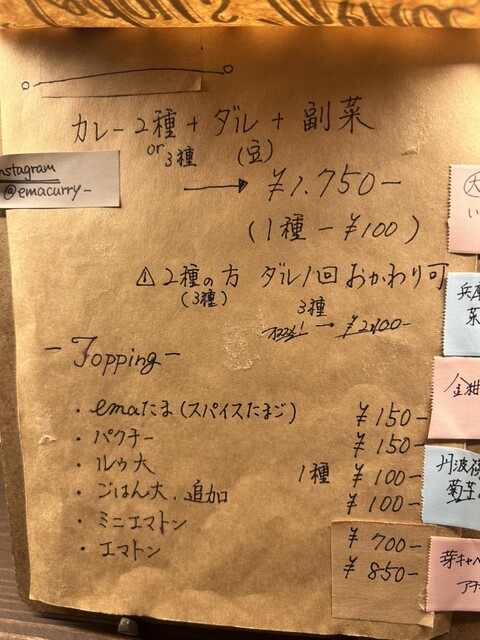 カレー2種 + ダル + 副菜
or 3種 (豆)
nstagram
@emacurry_
→ ¥1.750-
(1種 - ¥100)
⚠ 2種の方 ダル1回おかわり可
(3種)
3種
→ ¥2100-
- Topping -
・emaたま(スパイスたまご) ¥150-
・パクチー ¥150-
・ルゥ大 1種 ¥100-
・ごはん大.追加 ¥100-
・ミニエマトン ¥700-
・エマトン ¥850-
大
い
兵庫
菜
金柑
丹波
菊芋
芽キャベ
アチ